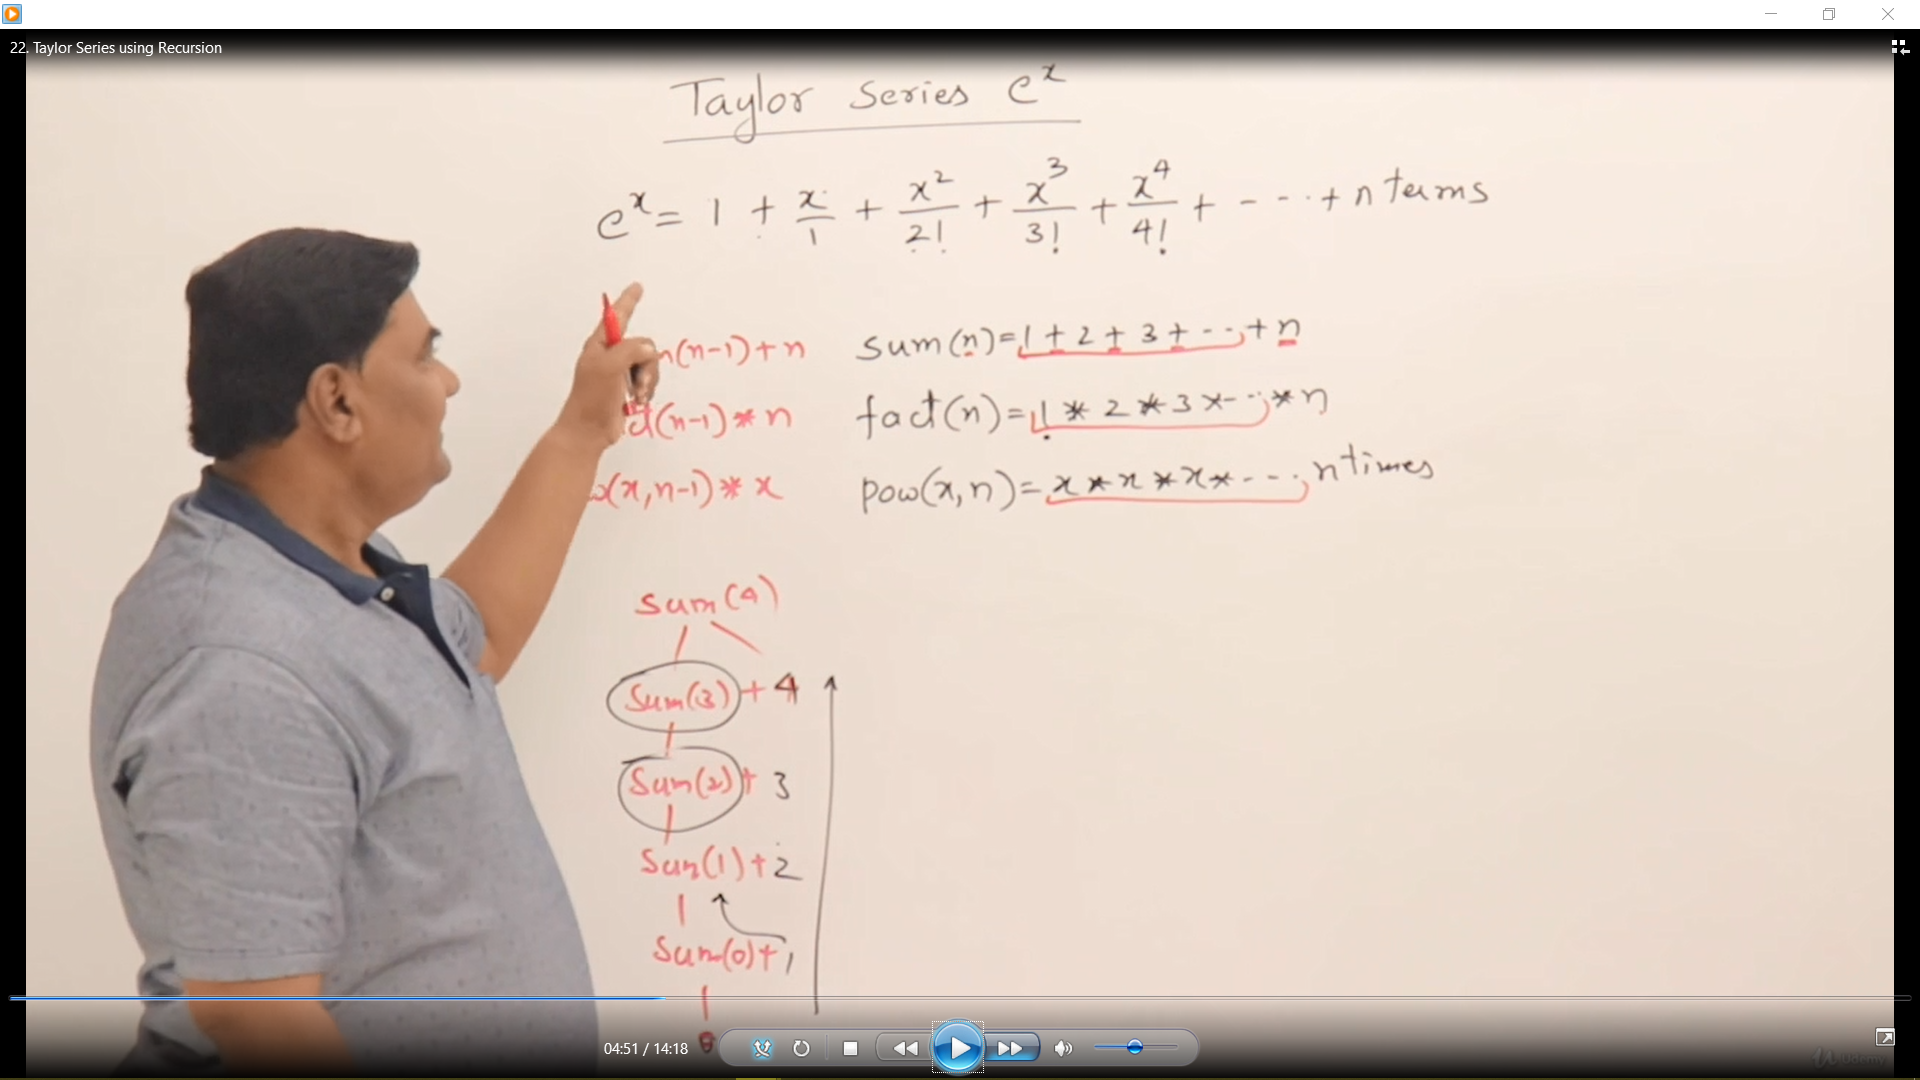 22. Taylor Series using Recursion
Taylor Series e^x
e^x = 1 + x/1 + x^2/2! + x^3/3! + x^4/4! + - - - + n terms
(n-1)+n sum(n)=1+2+3+---+n
(n-1)*n fact(n)=1*2*3*---*n
(x,n-1)*x pow(x,n)=x*x*x*---- n times
sum(4)
sum(3)+4
sum(2)+3
sum(1)+2
sum(0)+1
0
04:51 / 14:18
Udemy